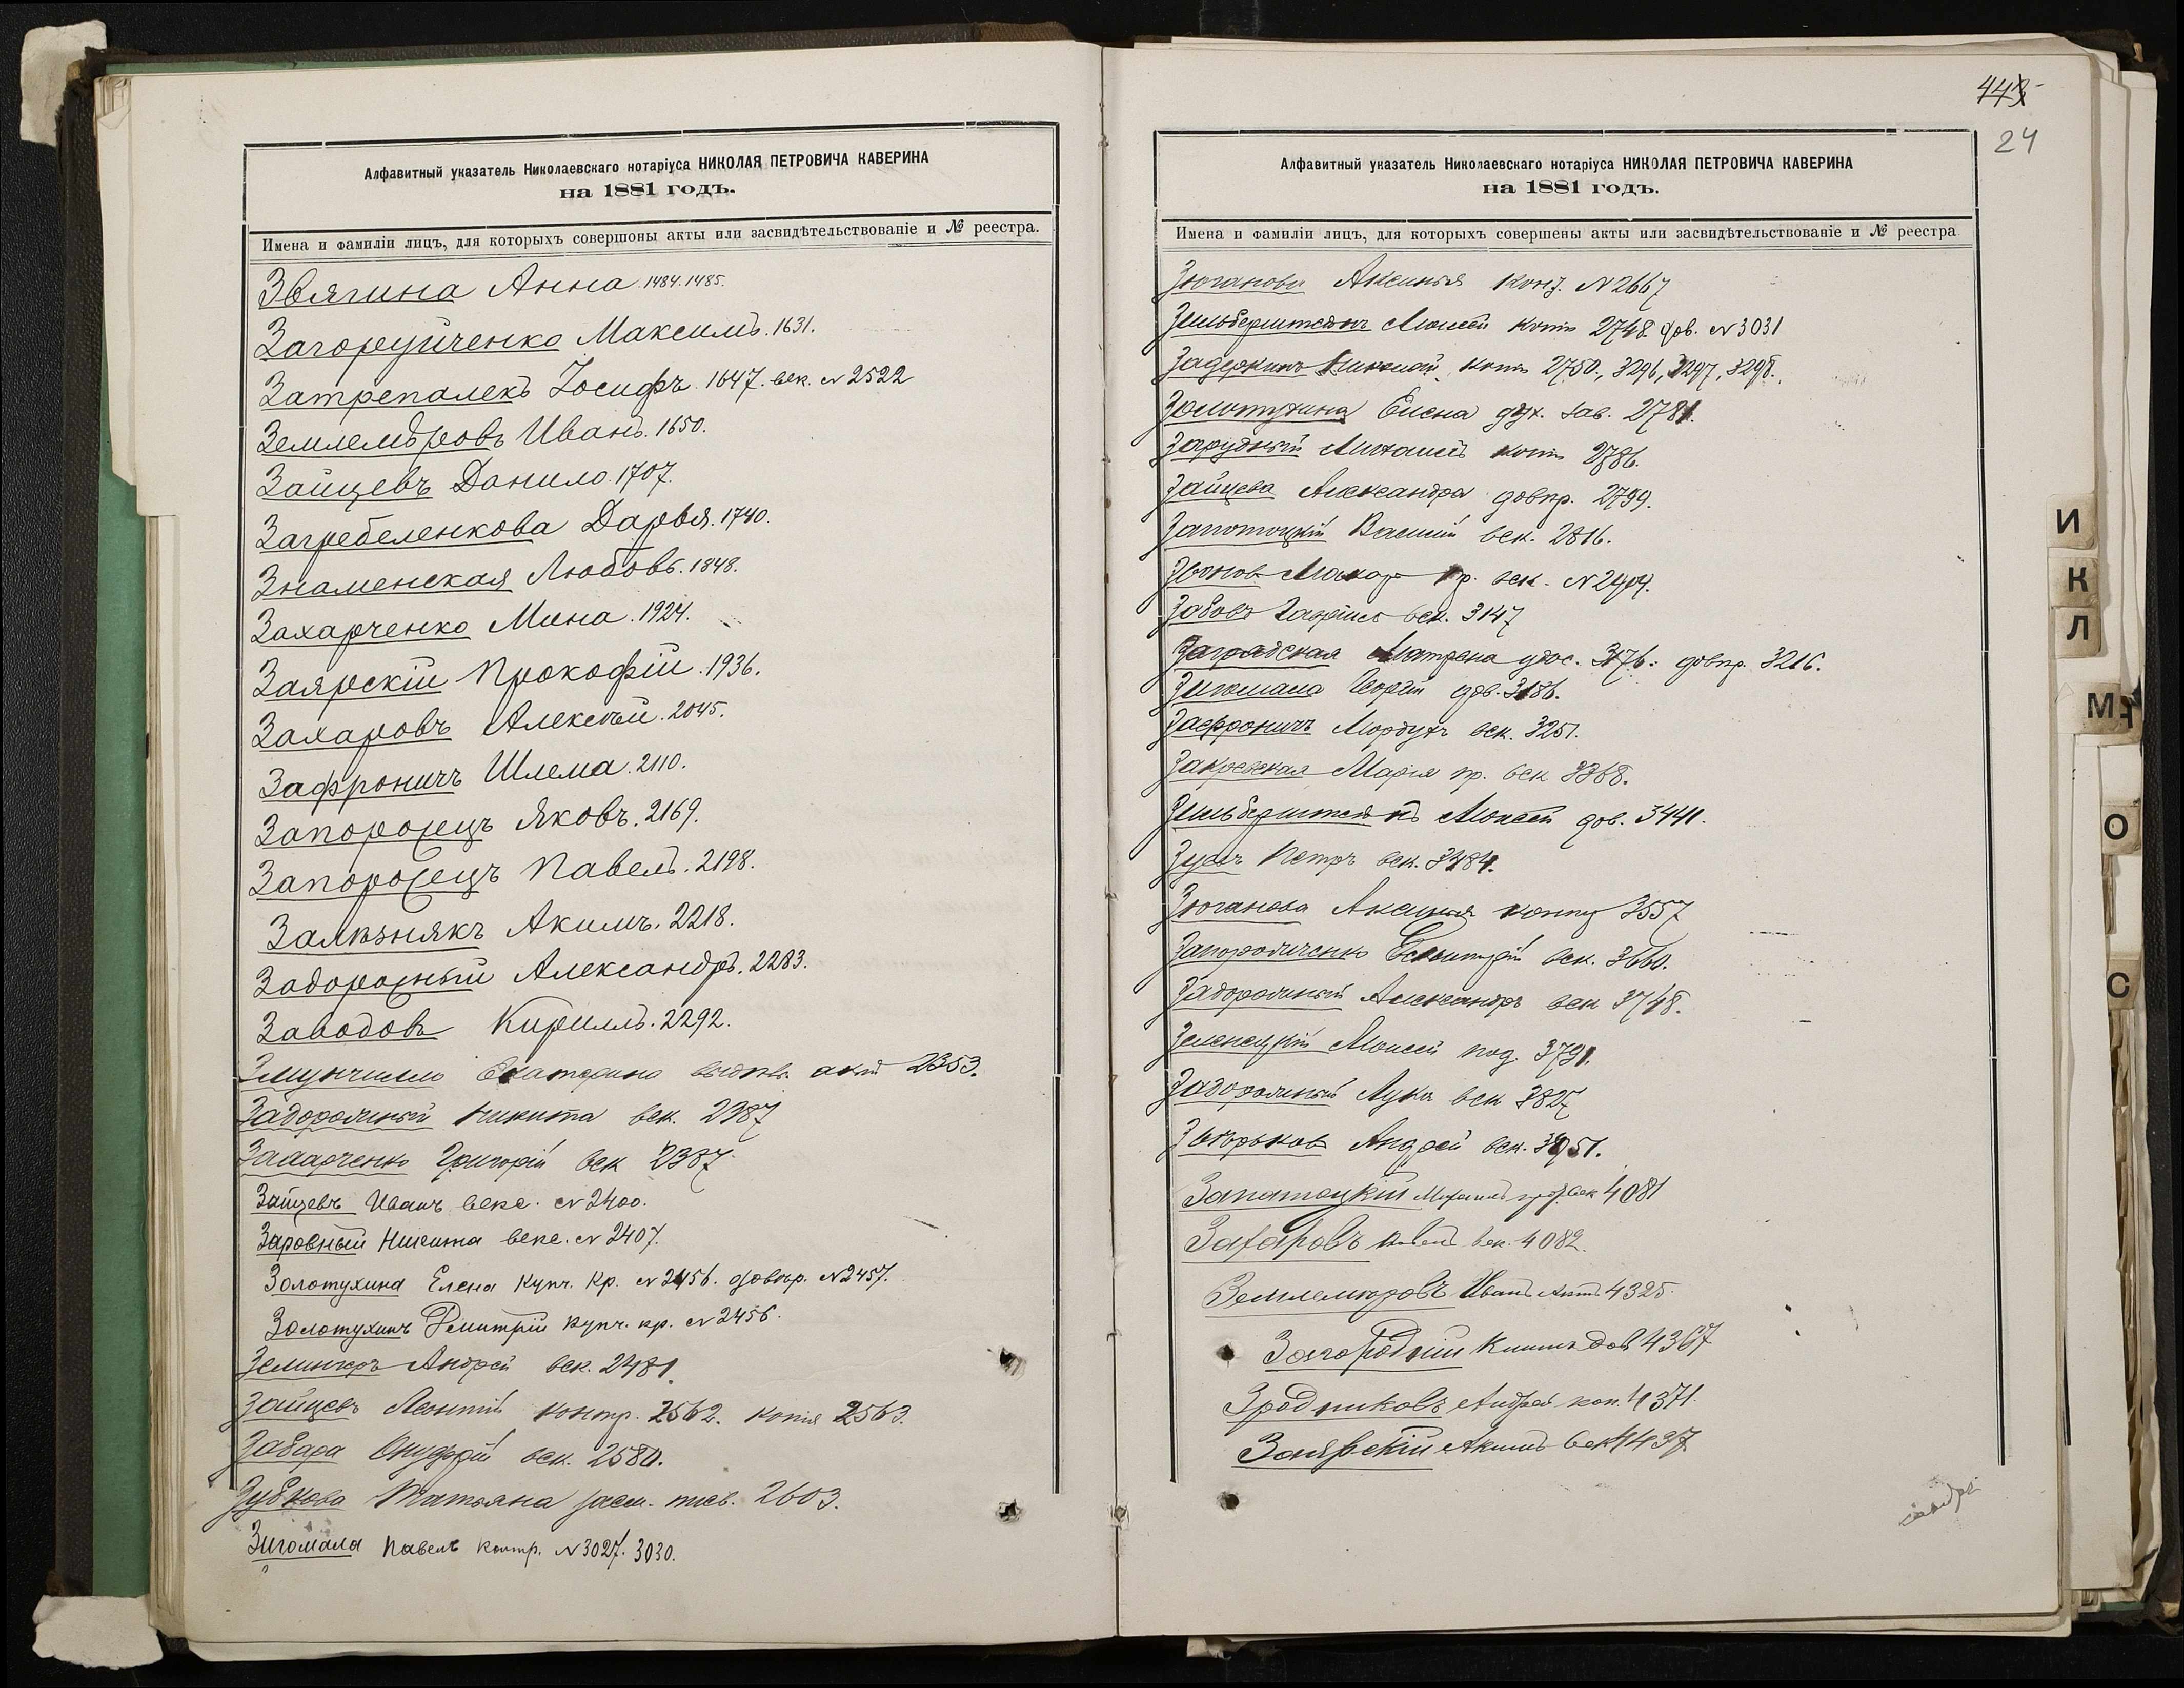 Алфавитный указатель Николаевскаго нотаріуса НИКОЛАЯ ПЕТРОВИЧА КАВЕРИНА
на 1881 годъ.
Имена и фамиліи лицъ, для которыхъ совершоны акты или засвидѣтельствованіе и № реестра.
Звягина Анна 1484. 1485.
Загоруйченко Максимъ. 1631.
Затрепалекъ Іосифъ. 1647. век. № 2522
Землемѣровъ Иванъ. 1650.
Зайцевъ Данило. 1707.
Загребеленкова Дарья. 1740.
Знаменская Любовь. 1848.
Захарченко Мина. 1924.
Заярскій Прокофій. 1936.
Захаровъ Алексѣй. 2045.
Зафроничъ Шлема. 2110.
Запорожецъ Яковъ. 2169.
Запорожецъ Павелъ. 2198.
Залѣзнякъ Акимъ. 2218.
Задорожный Александръ. 2283.
Заводовъ Кириллъ. 2292.
Екатерина 2353.
Задорожный Никита век. 2387
Григорій век 2387
Зайцевъ Иванъ векс. № 2400.
Заровный Никита векс. № 2407.
Золотухина Елена купч. кр. № 2456. довѣр. № 2457.
Золотухинъ Дмитрій купч. кр. № 2456.
Андрей век. 2481.
Зайцевъ Леонтій контр. 2562. копія 2563.
Забара Онуфрій век. 2580.
Зубкова Татьяна 2603.
Зигомала Павелъ контр. № 3027. 3030.
442
24
Алфавитный указатель Николаевскаго нотаріуса НИКОЛАЯ ПЕТРОВИЧА КАВЕРИНА
на 1881 годъ.
Имена и фамиліи лицъ, для которыхъ совершены акты или засвидѣтельствованіе и № реестра
Зюганова Аксинья № 2667
Зильберштейнъ Моисей копія 2748. дов. № 3031
Задержинъ Николай, копія 2750., 3296, 3297, 3298.
Золотухина Елена дух. зав. 2781.
Зарудный Михаилъ копія 2786.
Зайцева Александра довѣр. 2799.
Запотоцкій Василій век. 2816.
Макаръ пр. век. №
Зобовъ век. 3147
Загродская Матрена удос. 3176. довѣр. 3216.
Георгій дов. 3186.
Зафроничъ Мордухъ век. 3251.
Закревская Марія пр. век 3368.
Зильберштейнъ Моисей дов. 3441.
Петръ век. 3484.
Зюганова Аксинья 3557
век. 3660.
Задорожный Александръ век 3748.
Зеленецкій Моисей 3791.
Задорожный Лука век 3827
Андрей век. 3951.
Запатоцкій век 4081
Захаровъ век. 4082.
Землемѣровъ Иванъ 4325.
Загородній дов 4367
Зродниковъ Андрей коп. 4371.
Заярскій Акимъ век 4437
И
К
Л
М
О
С